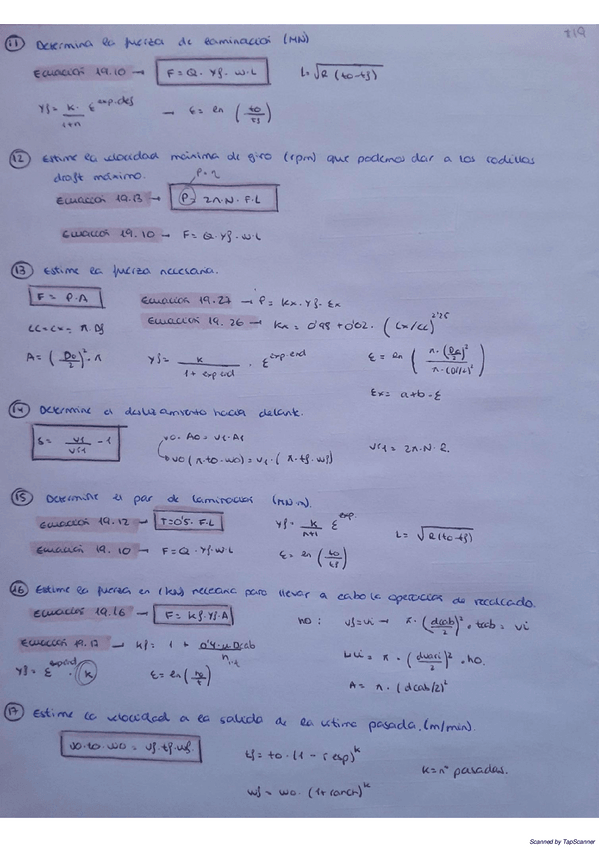 219
11 Determina la fuerza de laminación (MN)
Ecuación 19.10 → F = Q · Yf · W · L   L = √R (to - tf)
Yf = K · ε^exp.def / 1+n → ε = ln (to/tf)
12 Estime la velocidad máxima de giro (rpm) que podemos dar a los rodillos
draft máximo.
Ecuación 19.13 → P = 2π · N · F · L
Ecuación 19.10 → F = Q · Yf · W · L
13 Estime la fuerza necesaria.
F = P · A   Ecuación 19.27 → P = Kx · Yf · Ex
Cc = Cx = π · Df   Ecuación 19.26 → Kx = 0'98 + 0'02 · (Cx/Cc)^2'25
A = (Do/2)² · π   Yf = K / 1 + exp end · ε^exp.end   ε = ln
Ex = a + b · ε
14 Determine el deslizamiento hacia delante.
S = vf/vr1 - 1   vo · Ao = v1 · A1   vr1 = 2π · N · R.
vo (π · to · wo) = v1 · (π · tf · wf)
15 Determine el par de laminación (MN·m)
Ecuación 19.12 → T = 0'5 · F · L   Yf = K/n+1 ε^exp.   L = √R (to - tf)
Ecuación 19.10 → F = Q · Yf · W · L   ε = ln (to/tf)
16 Estime la fuerza en (kN) necesaria para llevar a cabo la operación de recalcado.
Ecuación 19.16 → F = Kf · Yf · A   ho : vf = vi → π · (dcab/2)² · tcab = vi
Ecuación 19.17 → Kf = 1 + 0'4 · μ Dcab /
Yf = · K   ε = ln   π · (dvari/2)² · ho.
A = π · (dcab/2)²
17 Estime la velocidad a la salida de la última pasada. (m/min).
vo · to · wo = vf · tf · wf.   tf = to · (1 - r exp)^k   k = nº pasadas.
wf = wo · (1 + ranch)^k
Scanned by TapScanner